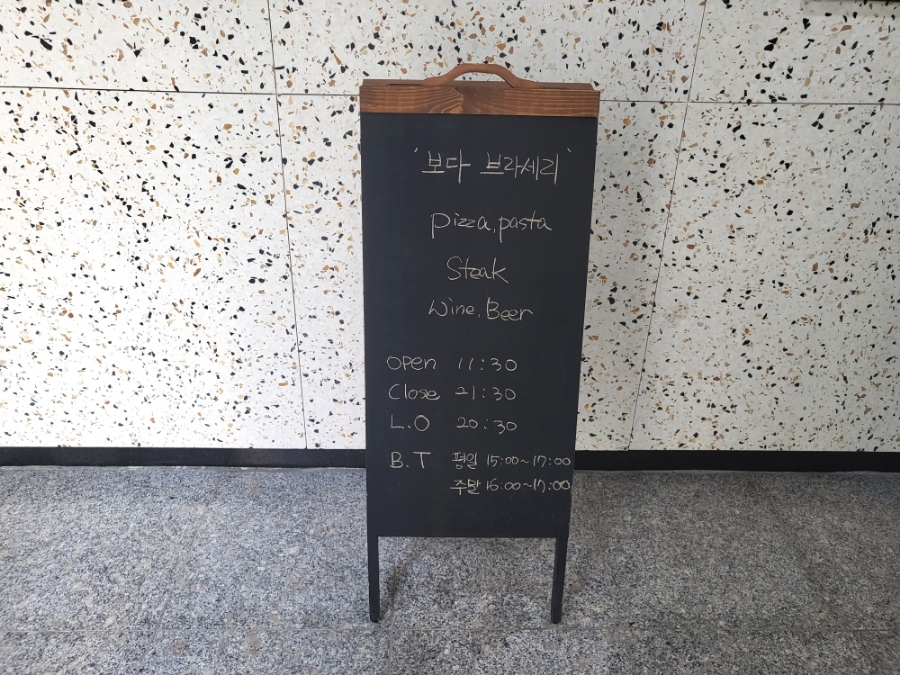 '보다 브라세리'
pizza, pasta
Steak
Wine, Beer
open 11:30
Close 21:30
L.O 20:30
B.T 평일 15:00~17:00
주말 16:00~17:00